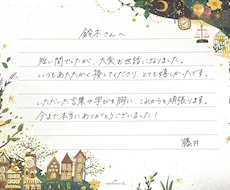 鈴木さんへ
短い間でしたが、大変お世話になりました。
いつもあたたかく接してくださり、とても嬉しかったです。
いただいた言葉や学びを胸に、これからも頑張ります。
今まで本当にありがとうございました！
藤井
Hallmark